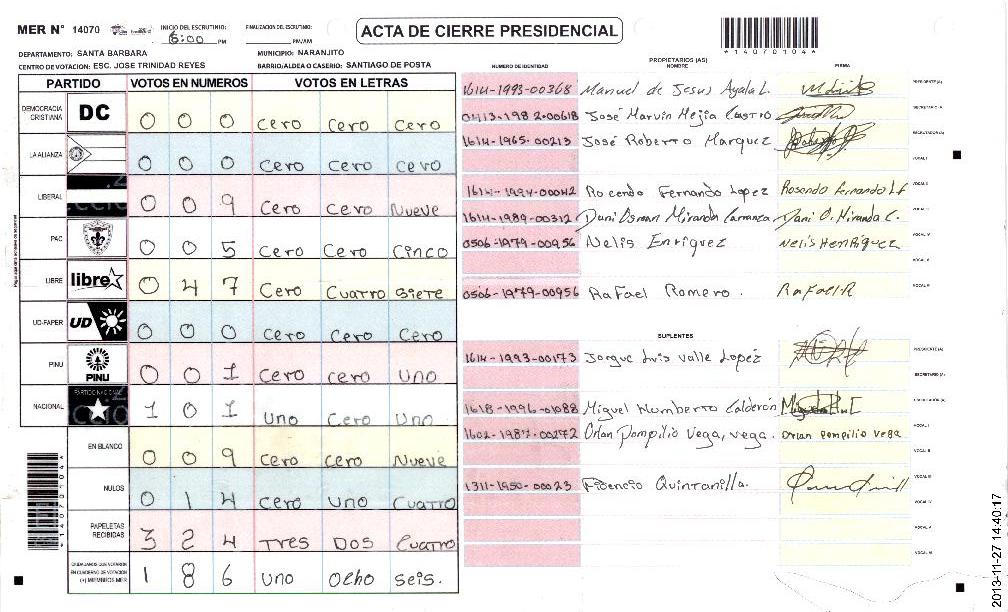 MER N° 14070
INICIO DEL ESCRUTINIO:
6:00 PM
FINALIZACION DEL ESCRUTINIO:
PM/AM
ACTA DE CIERRE PRESIDENCIAL
*14070104*
DEPARTAMENTO: SANTA BARBARA
MUNICIPIO: NARANJITO
CENTRO DE VOTACION: ESC. JOSE TRINIDAD REYES
BARRIO/ALDEA O CASERIO: SANTIAGO DE POSTA
PARTIDO VOTOS EN NUMEROS VOTOS EN LETRAS
DEMOCRACIA CRISTIANA DC 0 0 0 Cero Cero Cero
LA ALIANZA 0 0 0 Cero Cero Cero
LIBERAL 0 0 9 Cero Cero Nueve
PAC 0 0 5 Cero Cero Cinco
LIBRE libre 0 4 7 Cero Cuatro Siete
UD-FAPER UD 0 0 0 Cero Cero Cero
PINU PINU 0 0 1 Cero Cero Uno
NACIONAL PARTIDO NACIONAL 1 0 1 Uno Cero Uno
EN BLANCO 0 0 9 Cero Cero Nueve
NULOS 0 1 4 Cero Uno Cuatro
PAPELETAS RECIBIDAS 3 2 4 Tres Dos Cuatro
CIUDADANOS QUE VOTARON EN CUADERNO DE VOTACION (+) MIEMBROS MER 1 8 6 Uno Ocho Seis.
*14070104*
NUMERO DE IDENTIDAD
PROPIETARIOS (AS)
NOMBRE
FIRMA
1614-1993-00368 Manuel de Jesus Ayala L. PRESIDENTE (A)
0413-1982-00618 José Marvin Mejia Castro SECRETARIO (A)
1614-1965-00213 José Roberto Marquez ESCRUTADOR (A)
VOCAL I
1614-1994-00042 Rosendo Fernando Lopez Rosendo Fernando VOCAL II
1614-1989-00312 Dani Osman Miranda Carranza Dani O. Miranda C. VOCAL III
0506-1979-00956 Nelis Enriquez Nelis Henriquez VOCAL IV
VOCAL V
0506-1979-00956 Rafael Romero. Rafael R VOCAL VI
SUPLENTES
1614-1993-00173 Jorgue Luis Valle Lopez PRESIDENTE (A)
SECRETARIO (A)
1618-1996-01088 Miguel Humberto Calderón ESCRUTADOR (A)
1602-1987-00272 Orlan Pompilio Vega, vega. Orlan Pompilio Vega VOCAL I
VOCAL II
1311-1950-00023 Fidencio Quintanilla. VOCAL III
VOCAL IV
VOCAL V
VOCAL VI
2013-11-27 14:40:17